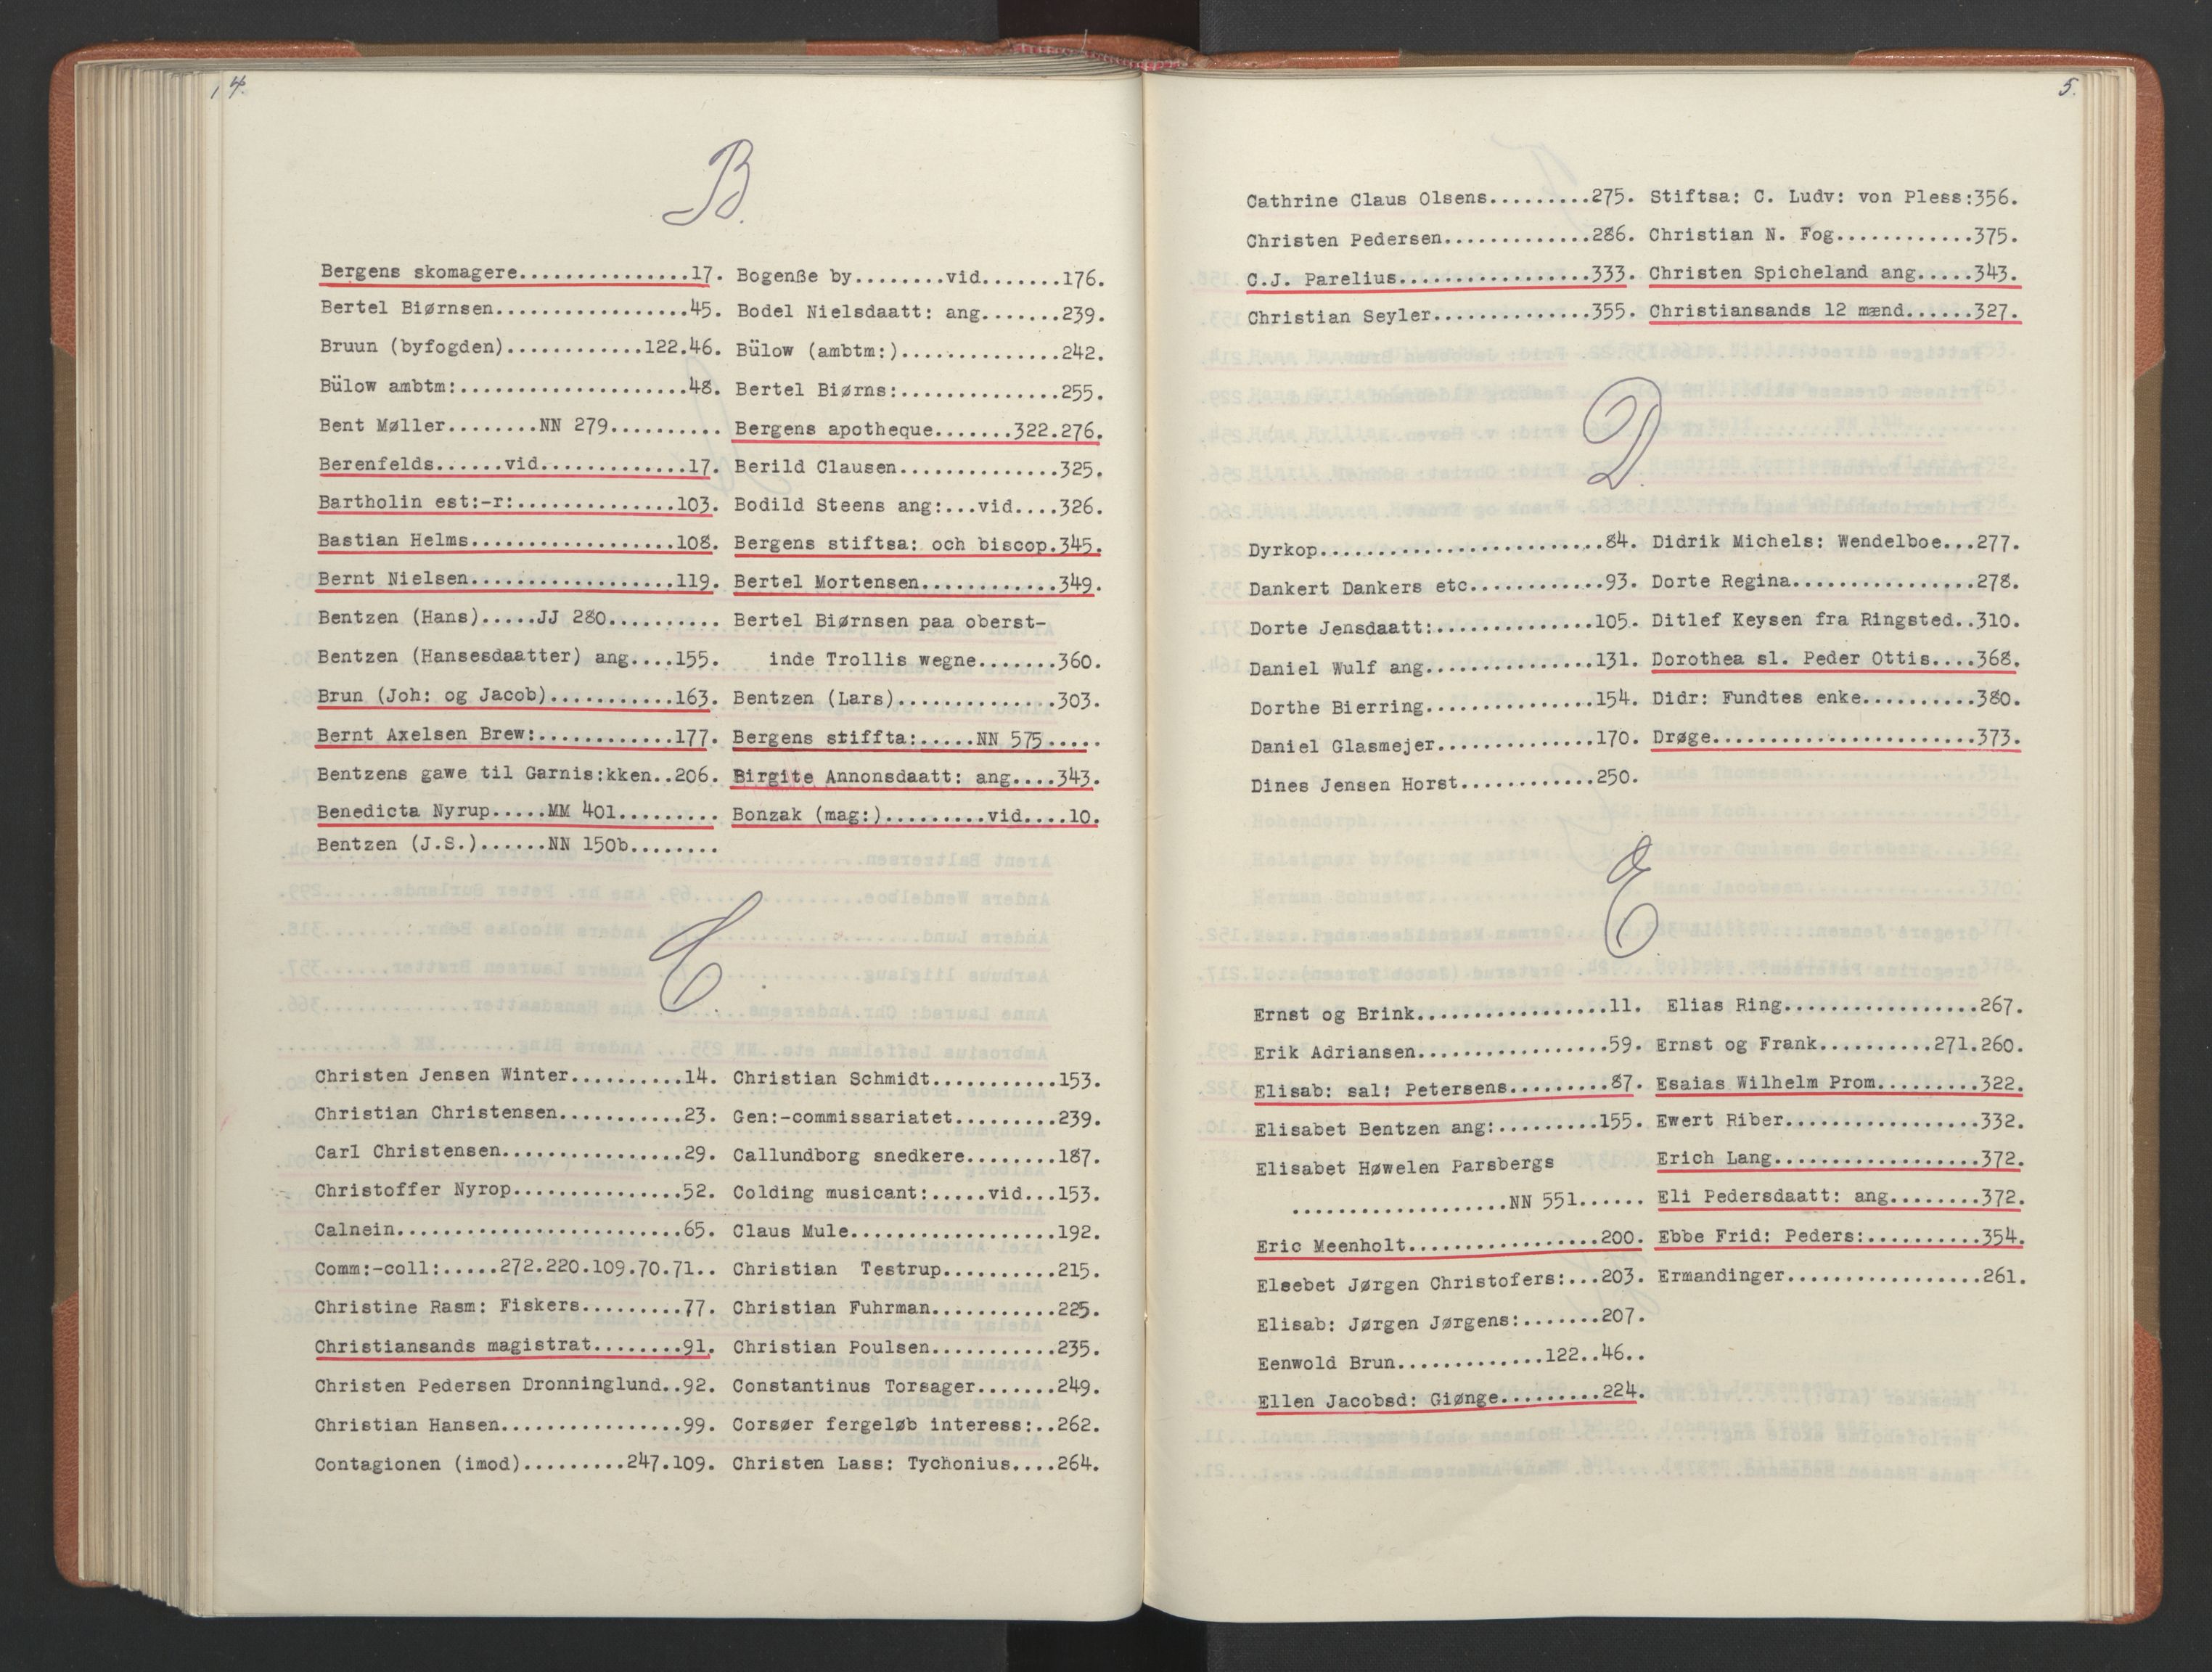 4.
B.
Bergens skomagere...............17.
Bertel Biørnsen.................45.
Bruun (byfogden)............122.46.
Bülow ambtm:....................48.
Bent Møller........NN 279..........
Berenfelds......vid.............17.
Bartholin est:-r:..............103.
Bastian Helms..................108.
Bernt Nielsen..................119.
Bentzen (Hans).....JJ 280..........
Bentzen (Hansesdaatter) ang....155.
Brun (Joh: og Jacob)...........163.
Bernt Axelsen Brew:............177.
Bentzens gawe til Garnis:kken..206.
Benedicta Nyrup.....MM 401.........
Bentzen (J.S.)......NN 150b........
Bogenße by........vid.......176.
Bodel Nielsdaatt: ang.......239.
Bülow (ambtm:)..............242.
Bertel Biørns:..............255.
Bergens apotheque.......322.276.
Berild Clausen..............325.
Bodild Steens ang:...vid....326.
Bergens stiftsa: och biscop.345.
Bertel Mortensen............349.
Bertel Biørnsen paa oberst-
inde Trollis wegne.......360.
Bentzen (Lars)..............303.
Bergens stiffta:.....NN 575.....
Birgite Annonsdaatt: ang....343.
Bonzak (mag:).........vid....10.
C.
Christen Jensen Winter..........14.
Christian Christensen...........23.
Carl Christensen................29.
Christoffer Nyrop...............52.
Calnein.........................65.
Comm:-coll:.....272.220.109.70.71..
Christine Rasm: Fiskers.........77.
Christiansands magistrat........91.
Christen Pedersen Dronninglund..92.
Christian Hansen................99.
Contagionen (imod).........247.109.
Christian Schmidt...........153.
Gen:-commissariatet.........239.
Callundborg snedkere........187.
Colding musicant:.....vid...153.
Claus Mule..................192.
Christian Testrup..........215.
Christian Fuhrman...........225.
Christian Poulsen...........235.
Constantinus Torsager.......249.
Corsøer fergeløb interess:..262.
Christen Lass: Tychonius....264.
5.
Cathrine Claus Olsens.........275.
Christen Pedersen.............286.
C.J. Parelius.................333.
Christian Seyler..............355.
Stiftsa: C. Ludv: von Pless:356.
Christian N. Fog............375.
Christen Spicheland ang.....343.
Christiansands 12 mænd......327.
D.
Dyrkop.........................84.
Dankert Dankers etc............93.
Dorte Jensdaatt:..............105.
Daniel Wulf ang...............131.
Dorthe Bierring...............154.
Daniel Glasmejer..............170.
Dines Jensen Horst............250.
Didrik Michels: Wendelboe...277.
Dorte Regina................278.
Ditlef Keysen fra Ringsted..310.
Dorothea sl. Peder Ottis....368.
Didr: Fundtes enke..........380.
Drøge.......................373.
E.
Ernst og Brink.................11.
Erik Adriansen.................59.
Elisab: sal: Petersens.........87.
Elisabet Bentzen ang:.........155.
Elisabet Høwelen Parsbergs
...................NN 551......
Eric Meenholt.................200.
Elsebet Jørgen Christofers:...203.
Elisab: Jørgen Jørgens:.......207.
Eenwold Brun.............122..46..
Ellen Jacobsd: Giønge.........224.
Elias Ring.................267.
Ernst og Frank..........271.260.
Esaias Wilhelm Prom.........322.
Ewert Riber.................332.
Erich Lang..................372.
Eli Pedersdaatt: ang........372.
Ebbe Frid: Peders:..........354.
Ermandinger.................261.